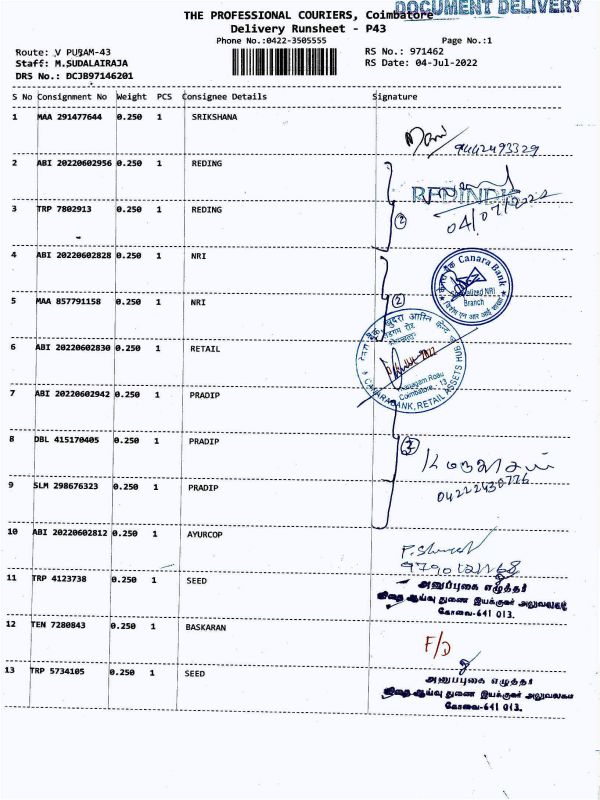 DOCUMENT DELIVERY
THE PROFESSIONAL COURIERS, Coimbatore
Delivery Runsheet - P43
Phone No.:0422-3505555
Page No.:1
Route: V PURAM-43
RS No.: 971462
Staff: M.SUDALAIRAJA
RS Date: 04-Jul-2022
DRS No.: DCJB97146201
S No Consignment No Weight PCS Consignee Details Signature
1 MAA 291477644 0.250 1 SRIKSHANA
9442493329
2 ABI 20220602956 0.250 1 REDING
REDINDIA
04/07/2022
3 TRP 7802913 0.250 1 REDING
2
4 ABI 20220602828 0.250 1 NRI
केनरा बैंक Canara Bank
NRI
Branch
5 MAA 857791158 0.250 1 NRI
2
6 ABI 20220602830 0.250 1 RETAIL
CANARA BANK, RETAIL ASSETS HUB
Coimbatore - 13
7 ABI 20220602942 0.250 1 PRADIP
8 DBL 415170405 0.250 1 PRADIP
3
9 SLM 298676323 0.250 1 PRADIP
04222430776
10 ABI 20220602812 0.250 1 AYURCOP
11 TRP 4123738 0.250 1 SEED
அனுப்புகை எழுத்தர்
விதை ஆய்வு துணை இயக்குநர் அலுவலகம்
கோவை-641 013.
12 TEN 7280843 0.250 1 BASKARAN
F/D
13 TRP 5734105 0.250 1 SEED
அனுப்புகை எழுத்தர்
விதை ஆய்வு துணை இயக்குநர் அலுவலகம்
கோவை-641 013.